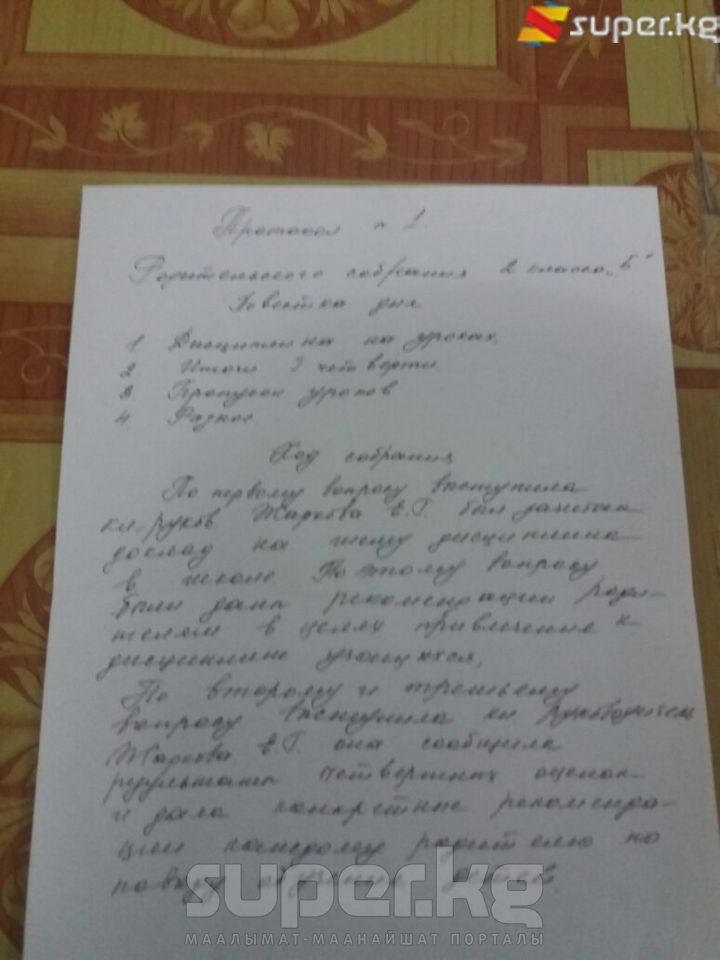 super.kg
Протокол n 1
Родительского собрания 2 класса „Б"
Повестка дня
1 Дисциплина на уроках.
2 Итоги 3 четверти.
3 Пропуски уроков
4 Разное.
Ход собрания
По первому вопросу выступила
кл-руков Жаркова Е.Г. был зачитан
доклад на тему дисциплина
в школе. По этому вопросу
были даны рекомендации роди-
телям в целях привлечения к
дисциплине учащихся.
По второму и третьему
вопросу выступила кл руководитель
Жаркова Е.Г. она сообщила
результаты четвертных оценок
и дала конкретные рекоменда-
ции каждому родителю по
поводу обучения детей.
super.kg
МААЛЫМАТ-МААНАЙШАТ ПОРТАЛЫ